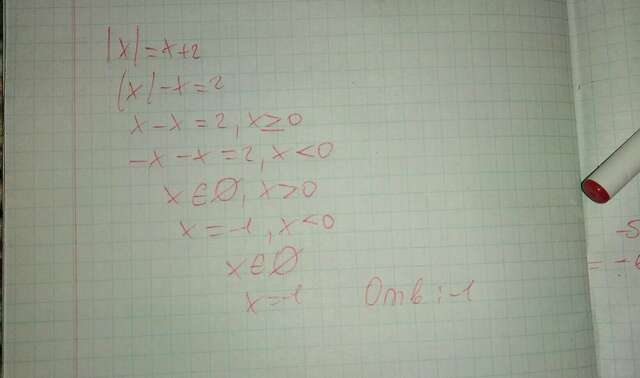 |x| = x+2
|x| - x = 2
x - x = 2, x ≥ 0
-x - x = 2, x < 0
x ∈ ∅, x > 0
x = -1, x < 0
x ∈ ∅
x = -1 Отв: -1
-5
= -6